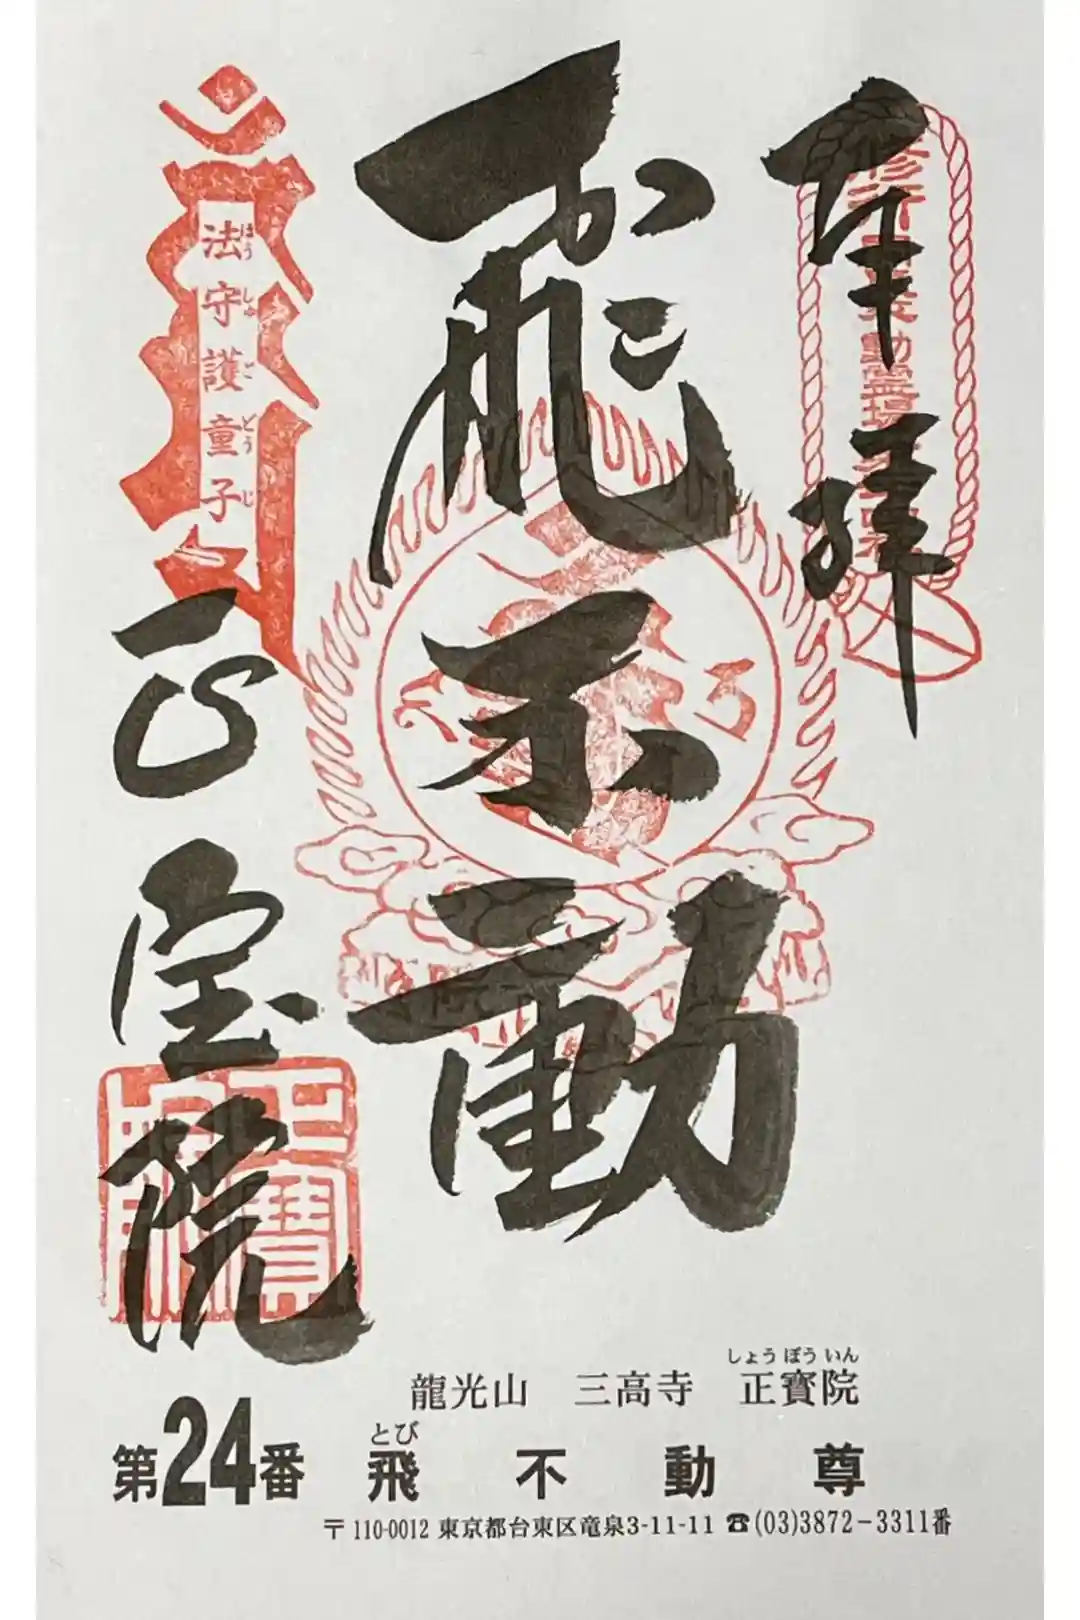 奉拝
飛不動
法守護童子
ほうしゅごどうじ
正宝院
正寶院
しょうぼういん
龍光山 三高寺 正寶院
第24番
とび
飛不動尊
〒110-0012 東京都台東区竜泉3-11-11 ☎(03)3872-3311番